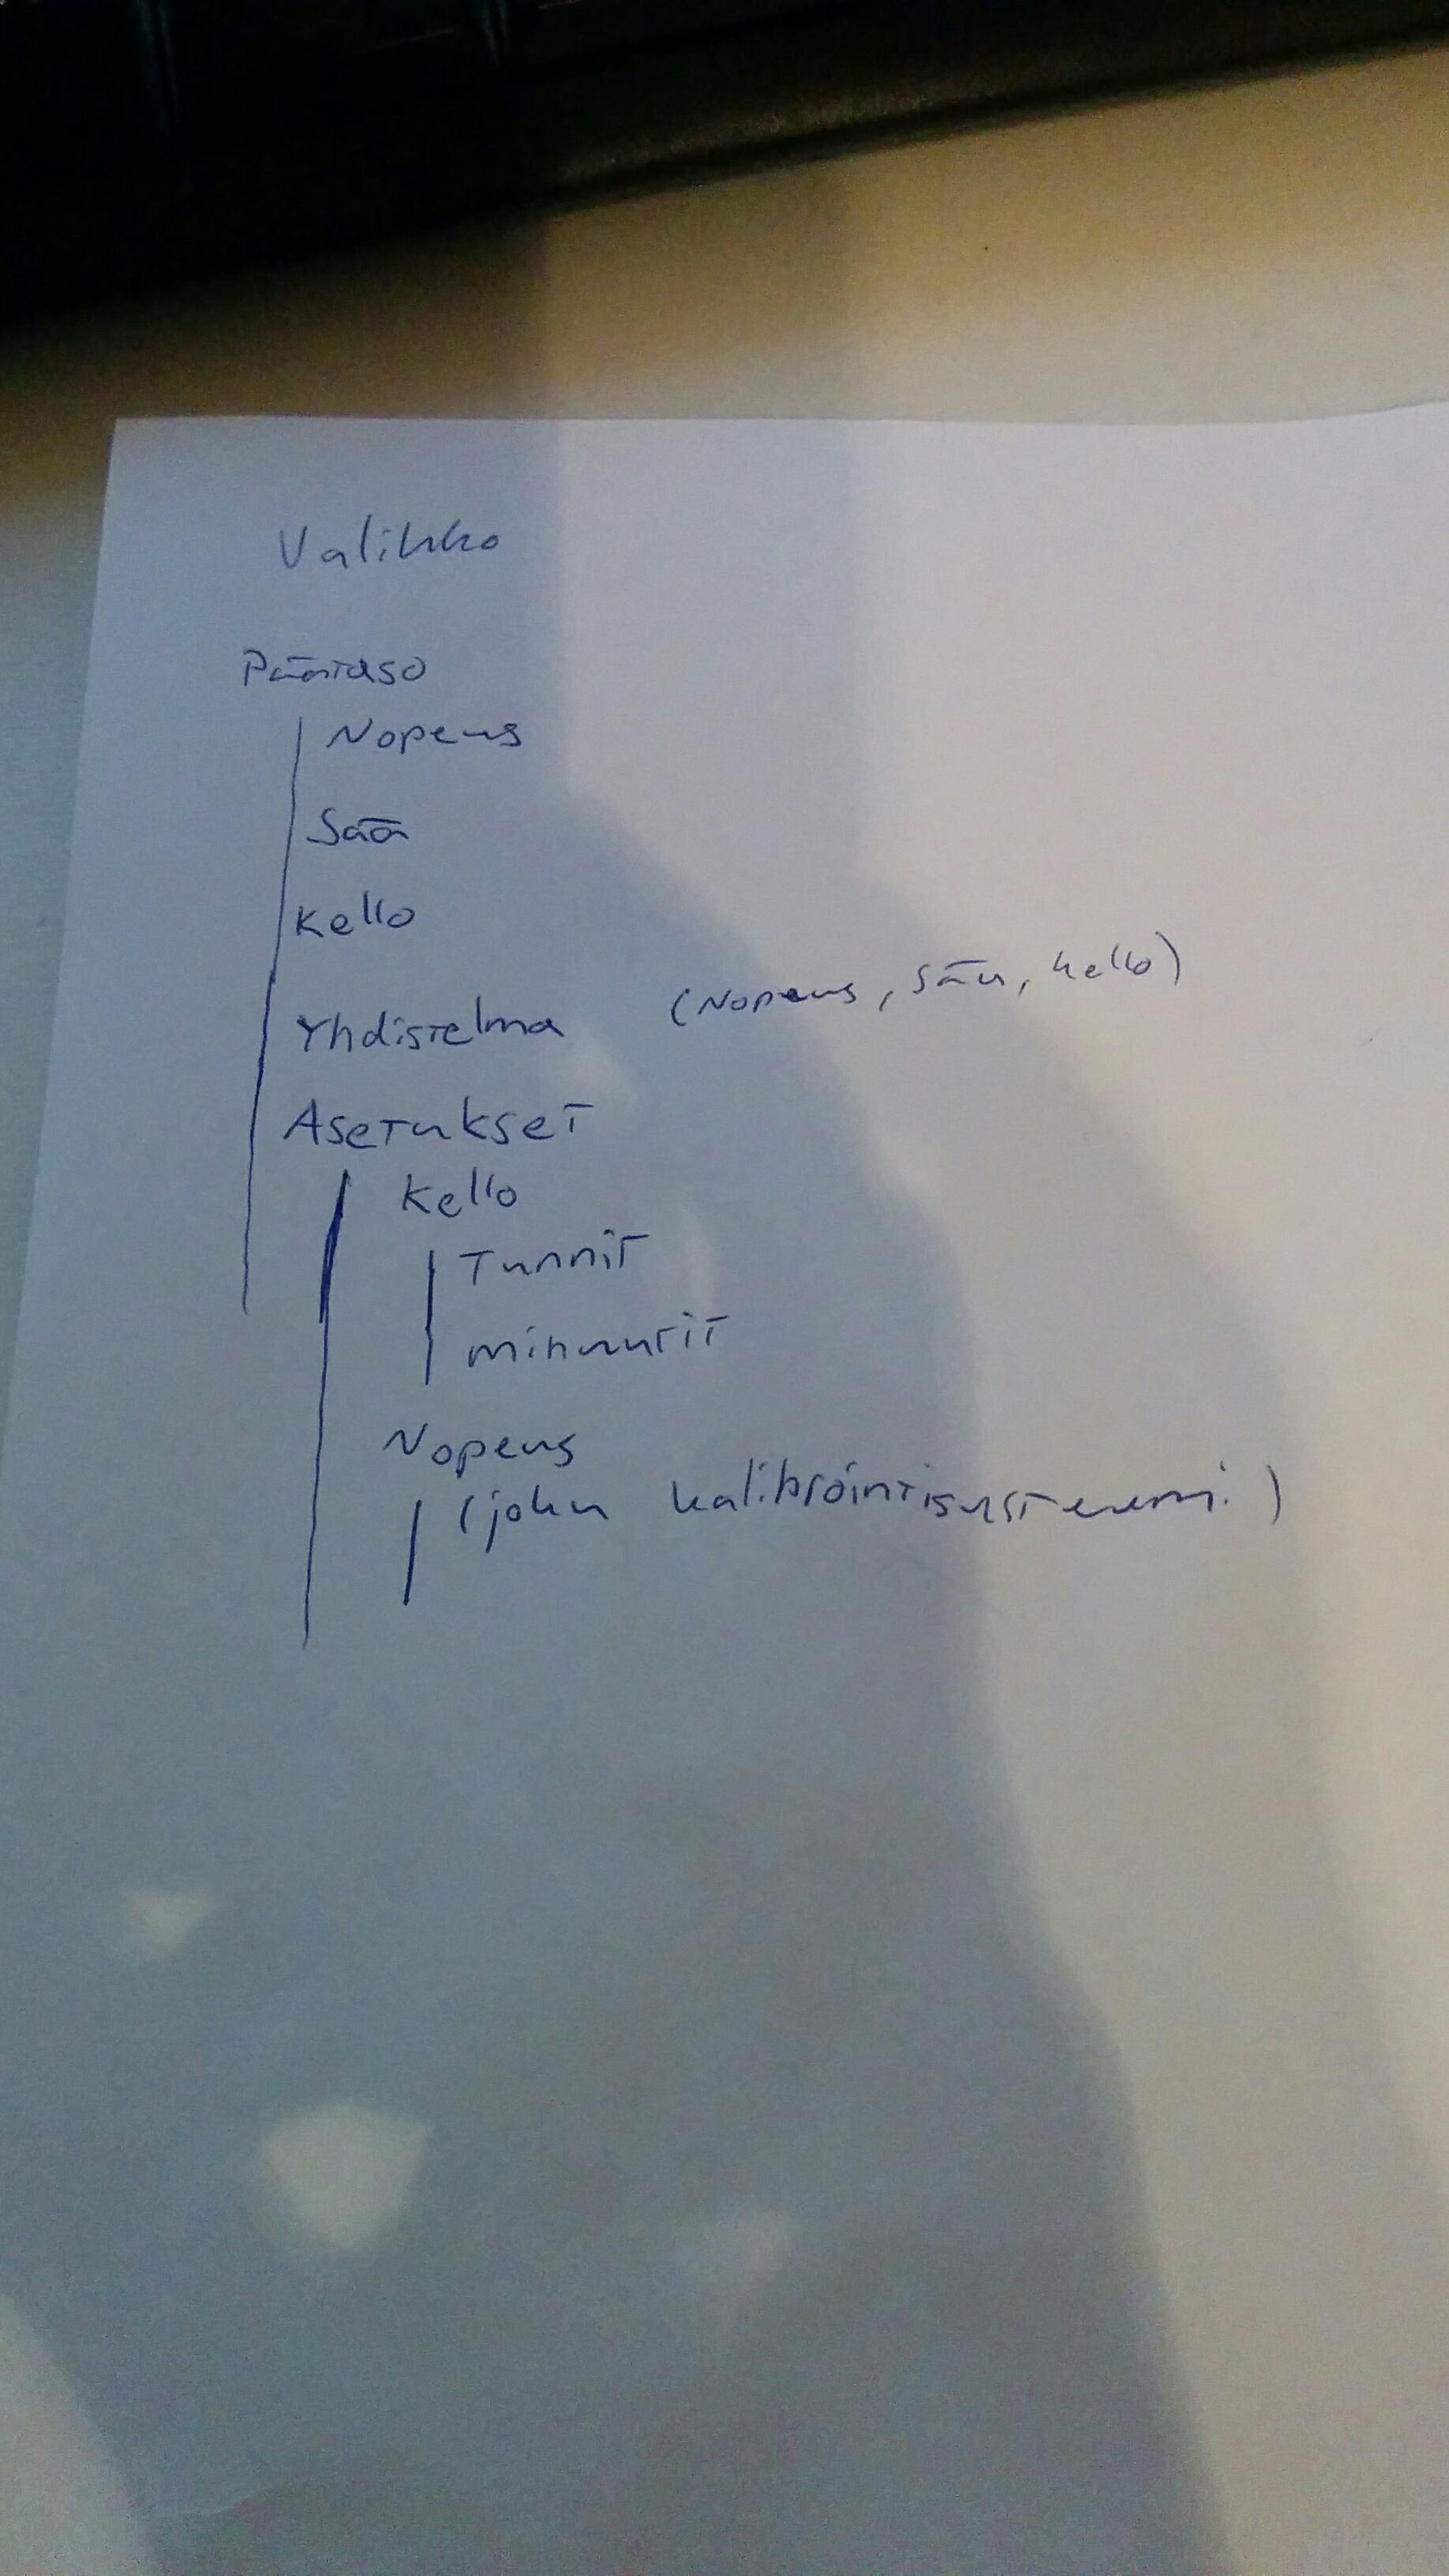 Valikko
Päätaso
Nopeus
Sää
Kello
Yhdistelmä (Nopeus, Sää, kello)
Asetukset
Kello
Tunnit
minuutit
Nopeus
(joku kalibrointisysteemi)